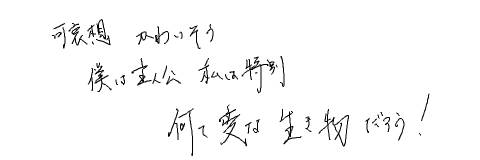 可哀想 かわいそう
僕は主人公 私は特別
何て変な生き物だろう！